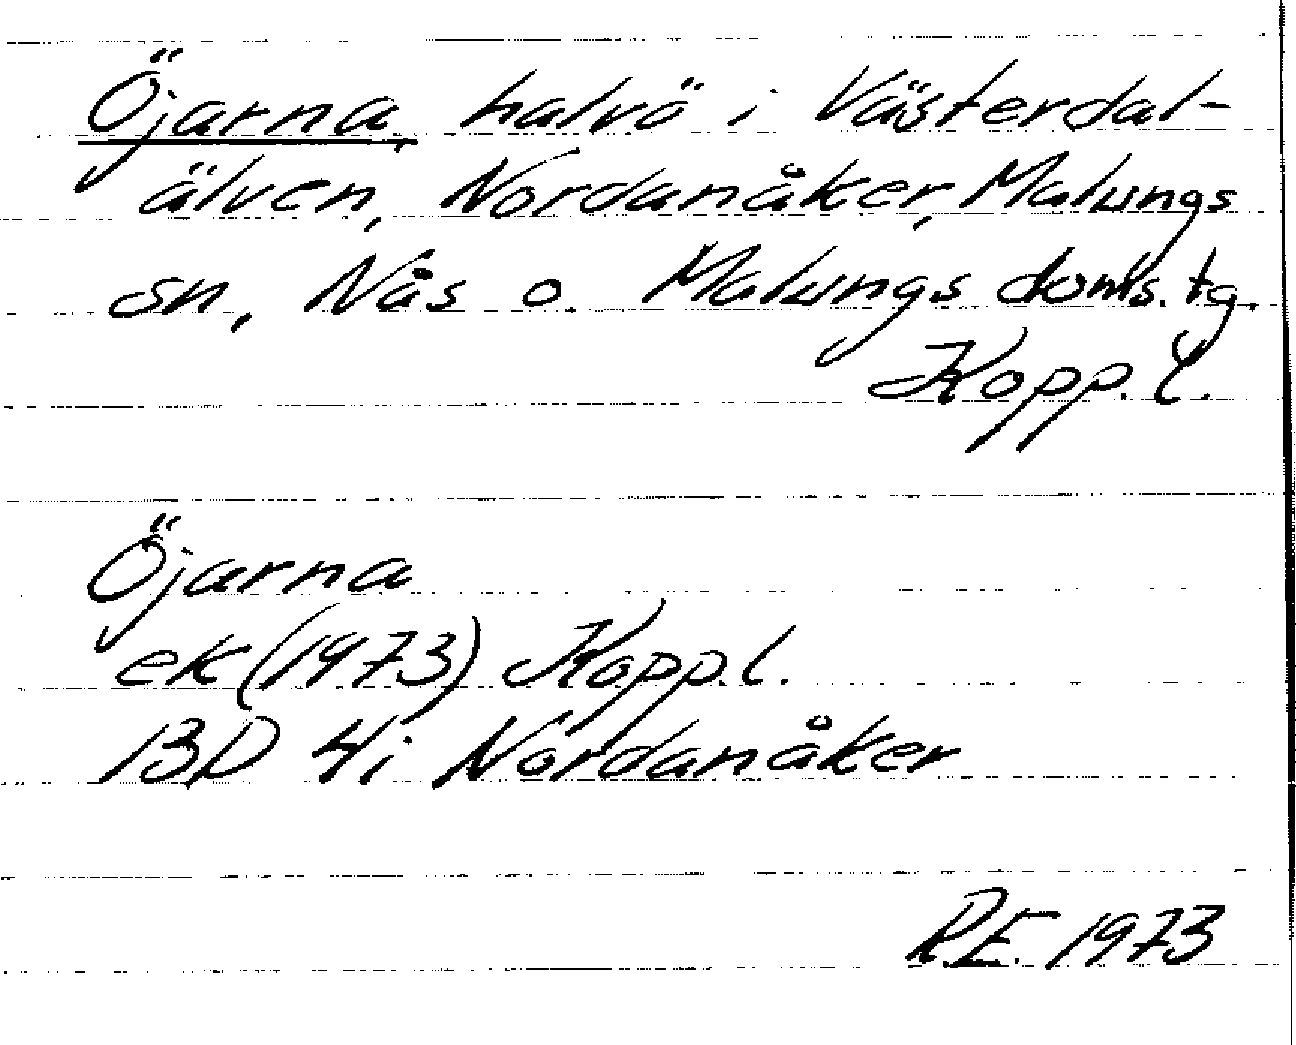 Öjarna, halvö i Västerdal-
älven, Nordanåker, Malungs
sn, Nås o. Malungs doms. tg.
Kopp. l.
Öjarna
ek (1973) Kopp. l.
13D 4i Nordanåker
R.E. 1973